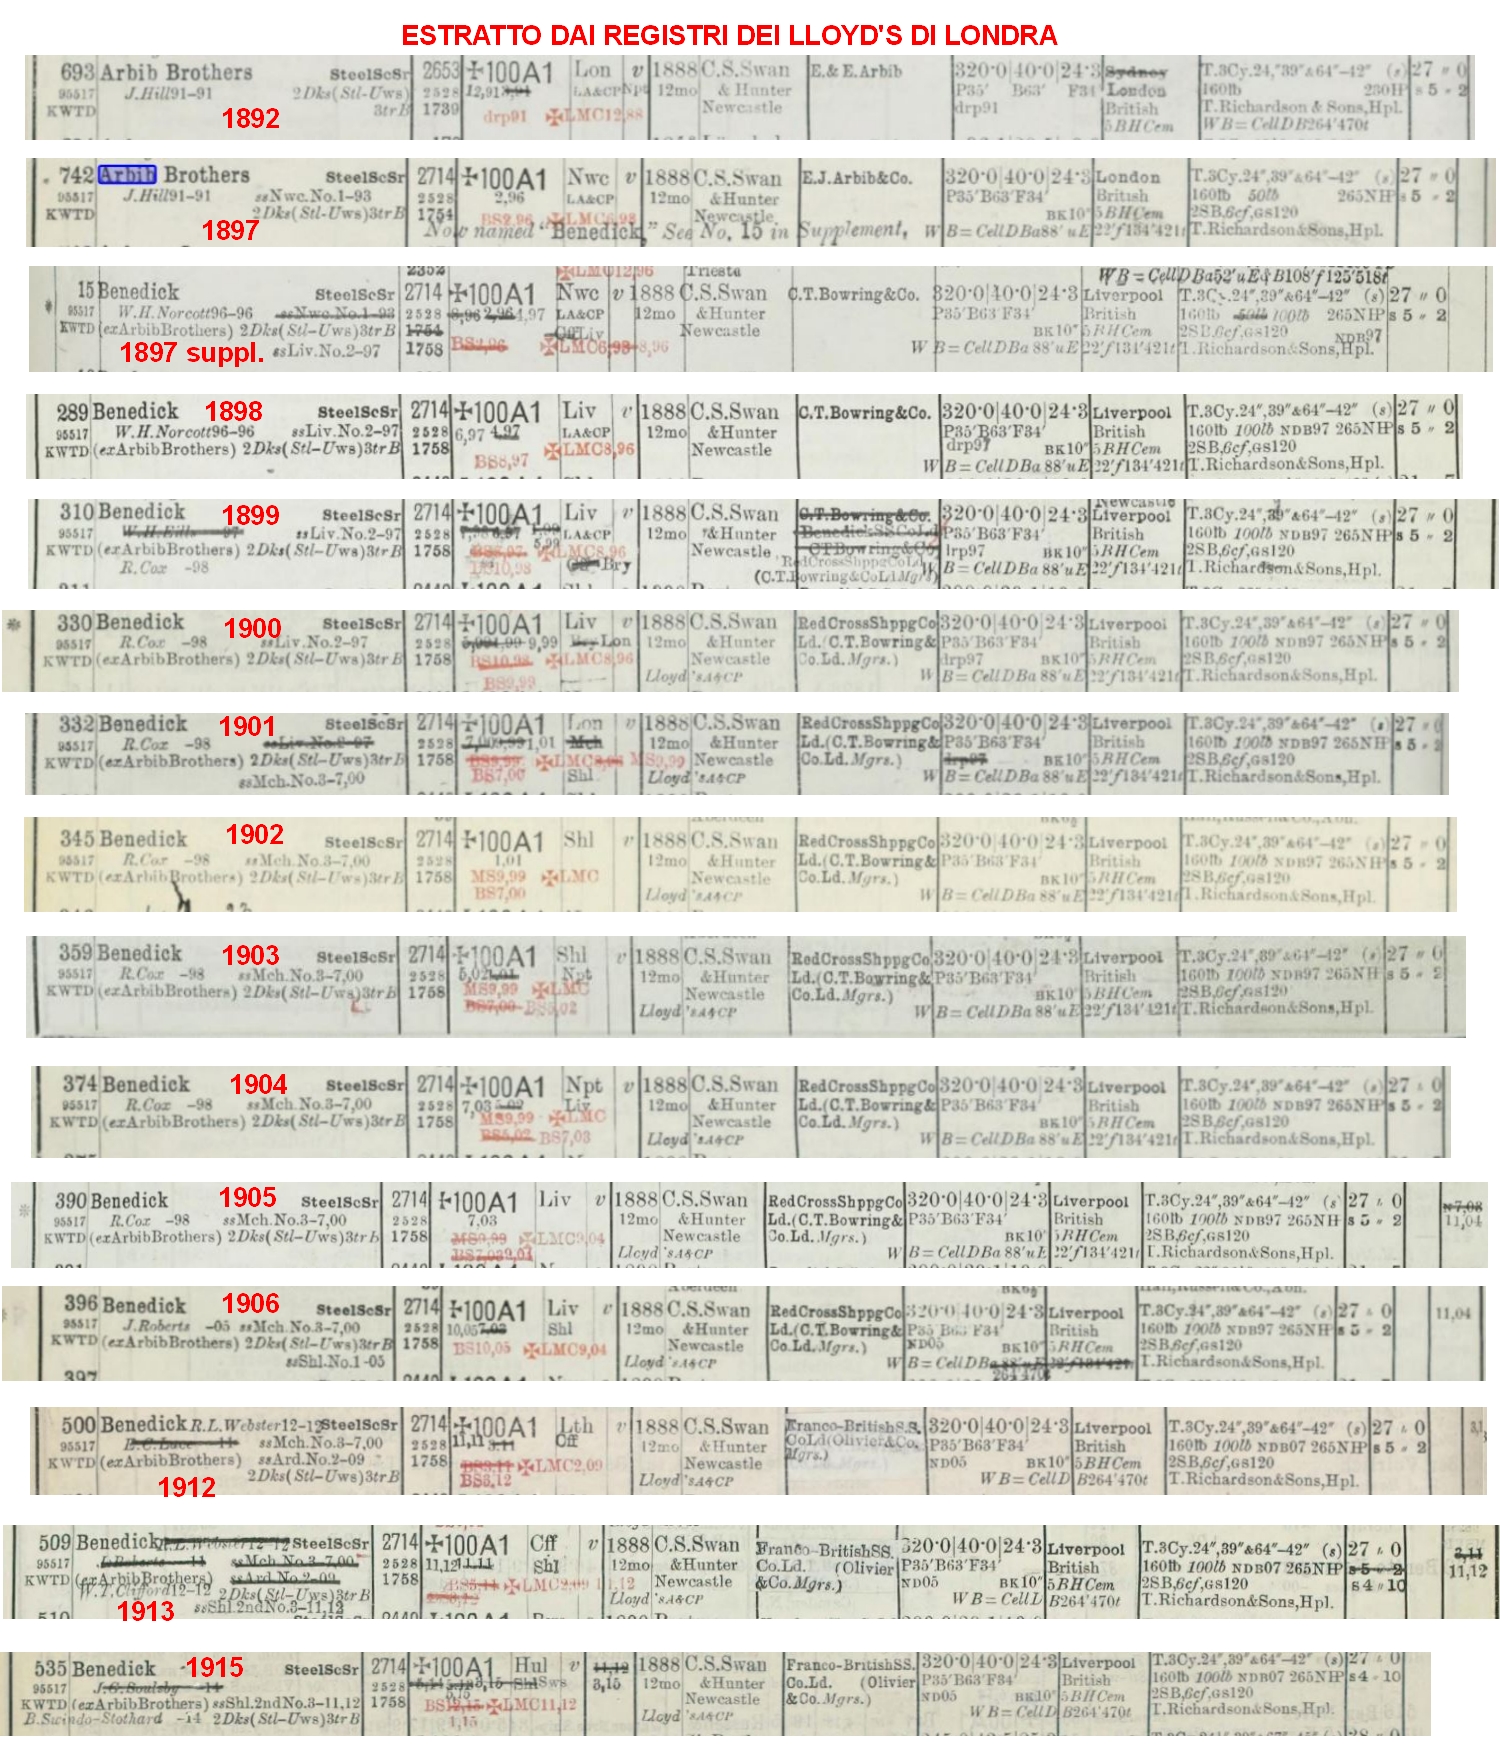 ESTRATTO DAI REGISTRI DEI LLOYD'S DI LONDRA
693 Arbib Brothers SteelScSr 2653 ✠100A1 Lon v 1888 C.S.Swan E.& E.Arbib 320·0 40·0 24·3 Sydney T.3Cy.24,"39"&64"–42" (s) 27 " 0
95517 J.Hill91–91 2Dks(Stl–Uws) 2528 12,91 LA&CP Npt 12mo & Hunter P35' B63' F34' London 160lb 230HP s 5 - 2
KWTD 1892 3trB 1739 drp91 ✠LMC12,88 Newcastle drp91 British T.Richardson & Sons,Hpl.
5BHCem WB=CellDB264'470t
742 Arbib Brothers SteelScSr 2714 ✠100A1 Nwc v 1888 C.S.Swan E.J.Arbib&Co. 320·0 40·0 24·3 London T.3Cy.24",39"&64"–42" (s) 27 " 0
95517 J.Hill91–91 ssNwc.No.1–93 2528 2,96 LA&CP 12mo &Hunter P35'B63'F34' British 160lb 50lb 265NH s 5 - 2
KWTD 2Dks(Stl–Uws)3trB 1754 BS2,96 ✠LMC6,93 Newcastle BK10" 5BHCem 2SB,6cf,GS120
1897 Now named "Benedick," See No. 15 in Supplement, WB=CellDBa88'uE 22'f134'421t T.Richardson&Sons,Hpl.
2352 ✠LMC12,96 Trieste WB=CellDBa52'uE&B108'f125'518t
15 Benedick SteelScSr 2714 ✠100A1 Nwc v 1888 C.S.Swan C.T.Bowring&Co. 320·0 40·0 24·3 Liverpool T.3Cy.24",39"&64"–42" (s) 27 " 0
95517 W.H.Norcott96–96 ssNwc.No.1–93 2528 8,96 2,96 4,97 LA&CP 12mo &Hunter P35'B63'F34' British 160lb 50lb 100lb 265NH s 5 - 2
KWTD (exArbibBrothers) 2Dks(Stl–Uws)3trB 1754 Cff Liv Newcastle BK10" 5BHCem 2SB,6cf,GS120 NDB97
1897 suppl. ssLiv.No.2–97 1758 BS2,96 ✠LMC6,93 8,96 WB=CellDBa 88'uE 22'f134'421t T.Richardson&Sons,Hpl.
289 Benedick 1898 SteelScSr 2714 ✠100A1 Liv v 1888 C.S.Swan C.T.Bowring&Co. 320·0 40·0 24·3 Liverpool T.3Cy.24",39"&64"–42" (s) 27 " 0
95517 W.H.Norcott96–96 ssLiv.No.2–97 2528 6,97 4,97 LA&CP 12mo &Hunter P35'B63'F34' British 160lb 100lb NDB97 265NHP s 5 - 2
KWTD (exArbibBrothers) 2Dks(Stl–Uws)3trB 1758 ✠LMC8,96 Newcastle drp97 BK10" 5BHCem 2SB,6cf,GS120
BS8,97 WB=CellDBa 88'uE 22'f134'421t T.Richardson&Sons,Hpl.
310 Benedick 1899 SteelScSr 2714 ✠100A1 Liv v 1888 C.S.Swan C.T.Bowring&Co. 320·0 40·0 24·3 Liverpool T.3Cy.24",39"&64"–42" (s) 27 " 0
95517 ssLiv.No.2–97 2528 LA&CP 12mo &Hunter P35'B63'F34' British 160lb 100lb NDB97 265NHP s 5 - 2
KWTD (exArbibBrothers) 2Dks(Stl–Uws)3trB 1758 5,99 ✠LMC8,96 Newcastle drp97 BK10" 5BHCem 2SB,6cf,GS120
R.Cox –98 BS10,98 Bry RedCrossShppgCoLd. (C.T.Bowring&CoLdMgrs) WB=CellDBa 88'uE 22'f134'421t T.Richardson&Sons,Hpl.
330 Benedick 1900 SteelScSr 2714 ✠100A1 Liv v 1888 C.S.Swan RedCrossShppgCo 320·0 40·0 24·3 Liverpool T.3Cy.24",39"&64"–42" (s) 27 " 0
95517 R.Cox –98 ssLiv.No.2–97 2528 9,99 Bry Lon 12mo &Hunter Ld.(C.T.Bowring& P35'B63'F34' British 160lb 100lb NDB97 265NHP s 5 - 2
KWTD (exArbibBrothers) 2Dks(Stl–Uws)3trB 1758 BS10,98 ✠LMC8,96 Newcastle Co.Ld.Mgrs.) drp97 BK10" 5BHCem 2SB,6cf,GS120
BS9,99 Lloyd'sA&CP WB=CellDBa 88'uE 22'f134'421t T.Richardson&Sons,Hpl.
332 Benedick 1901 SteelScSr 2714 ✠100A1 Lon v 1888 C.S.Swan RedCrossShppgCo 320·0 40·0 24·3 Liverpool T.3Cy.24",39"&64"–42" (s) 27 " 0
95517 R.Cox –98 ssLiv.No.2–97 2528 1,01 Mch 12mo &Hunter Ld.(C.T.Bowring& P35'B63'F34' British 160lb 100lb NDB97 265NHP s 5 - 2
KWTD (exArbibBrothers) 2Dks(Stl–Uws)3trB 1758 BS9,99 ✠LMC8,96 MS9,99 Newcastle Co.Ld.Mgrs.) drp97 BK10" 5BHCem 2SB,6cf,GS120
ssMch.No.3–7,00 BS7,00 Shl Lloyd'sA&CP WB=CellDBa 88'uE 22'f134'421t T.Richardson&Sons,Hpl.
345 Benedick 1902 SteelScSr 2714 ✠100A1 Shl v 1888 C.S.Swan RedCrossShppgCo 320·0 40·0 24·3 Liverpool T.3Cy.24",39"&64"–42" (s) 27 " 0
95517 R.Cox –98 ssMch.No.3–7,00 2528 1,01 12mo &Hunter Ld.(C.T.Bowring& P35'B63'F34' British 160lb 100lb NDB97 265NHP s 5 - 2
KWTD (exArbibBrothers) 2Dks(Stl–Uws)3trB 1758 MS9,99 ✠LMC Newcastle Co.Ld.Mgrs.) BK10" 5BHCem 2SB,6cf,GS120
BS7,00 Lloyd'sA&CP WB=CellDBa 88'uE 22'f134'421t T.Richardson&Sons,Hpl.
359 Benedick 1903 SteelScSr 2714 ✠100A1 Shl v 1888 C.S.Swan RedCrossShppgCo 320·0 40·0 24·3 Liverpool T.3Cy.24",39"&64"–42" (s) 27 " 0
95517 R.Cox –98 ssMch.No.3–7,00 2528 5,02 1,01 Npt 12mo &Hunter Ld.(C.T.Bowring& P35'B63'F34' British 160lb 100lb NDB97 265NHP s 5 - 2
KWTD (exArbibBrothers) 2Dks(Stl–Uws)3trB 1758 MS9,99 ✠LMC Newcastle Co.Ld.Mgrs.) BK10" 5BHCem 2SB,6cf,GS120
BS7,00 BS5,02 Lloyd'sA&CP WB=CellDBa 88'uE 22'f134'421t T.Richardson&Sons,Hpl.
374 Benedick 1904 SteelScSr 2714 ✠100A1 Npt v 1888 C.S.Swan RedCrossShppgCo 320·0 40·0 24·3 Liverpool T.3Cy.24",39"&64"–42" (s) 27 " 0
95517 R.Cox –98 ssMch.No.3–7,00 2528 7,03 5,02 Liv 12mo &Hunter Ld.(C.T.Bowring& P35'B63'F34' British 160lb 100lb NDB97 265NHP s 5 - 2
KWTD (exArbibBrothers) 2Dks(Stl–Uws)3trB 1758 MS9,99 ✠LMC Newcastle Co.Ld.Mgrs.) BK10" 5BHCem 2SB,6cf,GS120
BS5,02 BS7,03 Lloyd'sA&CP WB=CellDBa 88'uE 22'f134'421t T.Richardson&Sons,Hpl.
390 Benedick 1905 SteelScSr 2714 ✠100A1 Liv v 1888 C.S.Swan RedCrossShppgCo 320·0 40·0 24·3 Liverpool T.3Cy.24",39"&64"–42" (s 27 " 0
95517 R.Cox –98 ssMch.No.3–7,00 2528 7,03 12mo &Hunter Ld.(C.T.Bowring& P35'B63'F34' British 160lb 100lb NDB97 265NH s 5 - 2 11,04
KWTD (exArbibBrothers) 2Dks(Stl–Uws)3trB 1758 MS9,99 ✠LMC9,04 Newcastle Co.Ld.Mgrs.) BK10" 5BHCem 2SB,6cf,GS120
BS7,03 9,04 Lloyd'sA&CP WB=CellDBa 88'uE 22'f134'421t T.Richardson&Sons,Hpl.
396 Benedick 1906 SteelScSr 2714 ✠100A1 Liv v 1888 C.S.Swan RedCrossShppgCo 320·0 40·0 24·3 Liverpool T.3Cy.24",39"&64"–42" (s) 27 " 0 11,04
95517 J.Roberts –05 ssMch.No.3–7,00 2528 10,05 7,03 Shl 12mo &Hunter Ld.(C.T.Bowring& P35'B63'F34' British 160lb 100lb NDB97 265NHP s 5 - 2
KWTD (exArbibBrothers) 2Dks(Stl–Uws)3trB 1758 BS10,05 ✠LMC9,04 Newcastle Co.Ld.Mgrs.) ND05 BK10" 5BHCem 2SB,6cf,GS120
ssShl.No.1–05 Lloyd'sA&CP WB=CellDBa 88'uE 22'f134'421t 264'470t T.Richardson&Sons,Hpl.
500 Benedick R.L.Webster12–12 SteelScSr 2714 ✠100A1 Lth v 1888 C.S.Swan Franco-BritishS.S. 320·0 40·0 24·3 Liverpool T.3Cy.24",39"&64"–42" (s) 27 " 0
95517 ssMch.No.3–7,00 2528 11,11 3,11 Cff 12mo &Hunter CoLd(Olivier&Co. P35'B63'F34' British 160lb 100lb NDB07 265NHP s 5 - 2
KWTD (exArbibBrothers) ssArd.No.2–09 1758 BS3,11 ✠LMC2,09 Newcastle Mgrs.) ND05 BK10" 5BHCem 2SB,6cf,GS120
1912 2Dks(Stl–Uws)3trB BS3,12 Lloyd'sA&CP WB=CellD B264'470t T.Richardson&Sons,Hpl.
509 Benedick R.L.Webster12–12 SteelScSr 2714 ✠100A1 Cff v 1888 C.S.Swan Franco-BritishSS. 320·0 40·0 24·3 Liverpool T.3Cy.24",39"&64"–42" (s) 27 " 0
95517 ssMch.No.3–7,00 2528 11,12 11,11 Shl 12mo &Hunter Co.Ld. (Olivier P35'B63'F34' British 160lb 100lb NDB07 265NHP s 5 - 2 11,12
KWTD (exArbibBrothers) ssArd.No.2–09 1758 ✠LMC2,09 11,12 Newcastle &Co.Mgrs.) ND05 BK10" 5BHCem 2SB,6cf,GS120 s 4 " 10
W.T.Clifford12–12 2Dks(Stl–Uws)3trB Lloyd'sA&CP WB=CellD B264'470t T.Richardson&Sons,Hpl.
1913 ssShl.2ndNo.3–11,12
535 Benedick 1915 SteelScSr 2714 ✠100A1 Hul v 11,12 1888 C.S.Swan Franco-BritishSS. 320·0 40·0 24·3 Liverpool T.3Cy.24",39"&64"–42" (s) 27 " 0
95517 J.G.Soulsby –14 2528 3,15 Shl Sws 3,15 12mo &Hunter Co.Ld. (Olivier P35'B63'F34' British 160lb 100lb NDB07 265NHP s 4 - 10
KWTD (exArbibBrothers) ssShl.2ndNo.3–11,12 1758 ✠LMC11,12 Newcastle &Co.Mgrs.) ND05 BK10" 5BHCem 2SB,6cf,GS120
B.Swindo-Stothard –14 2Dks(Stl–Uws)3trB 1,15 Lloyd'sA&CP WB=CellD B264'470t T.Richardson&Sons,Hpl.